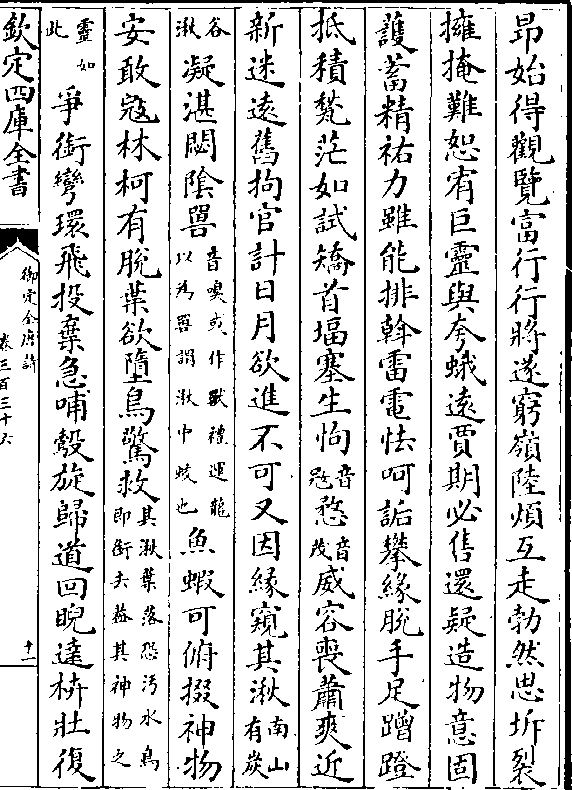 昂始得觀覽富行行將遂窮嶺陸煩互走勃然思坼裂
擁掩難恕宥巨靈與夸蛾遠賈期必售還疑造物意固
護蓄精祐力雖能排斡雷電怯呵詬攀緣脫手足蹭蹬
抵積甃茫如試矯首堛塞生怐音冦愗音茂威容喪蕭爽近
新迷遠舊拘官計日月欲進不可又因緣窺其湫南山有炭
谷湫凝湛閟陰嘼音嗅或作獸禮運龍以為嘼謂湫中蛟也魚蝦可俯掇神物
安敢寇林柯有脫葉欲墮鳥驚救其湫葉落恐污水鳥即銜去葢其神物之
靈如此爭銜彎環飛投棄急哺鷇旋歸道回睨達枿壯復
欽定四庫全書
御定全唐詩
卷三百三十六
十一